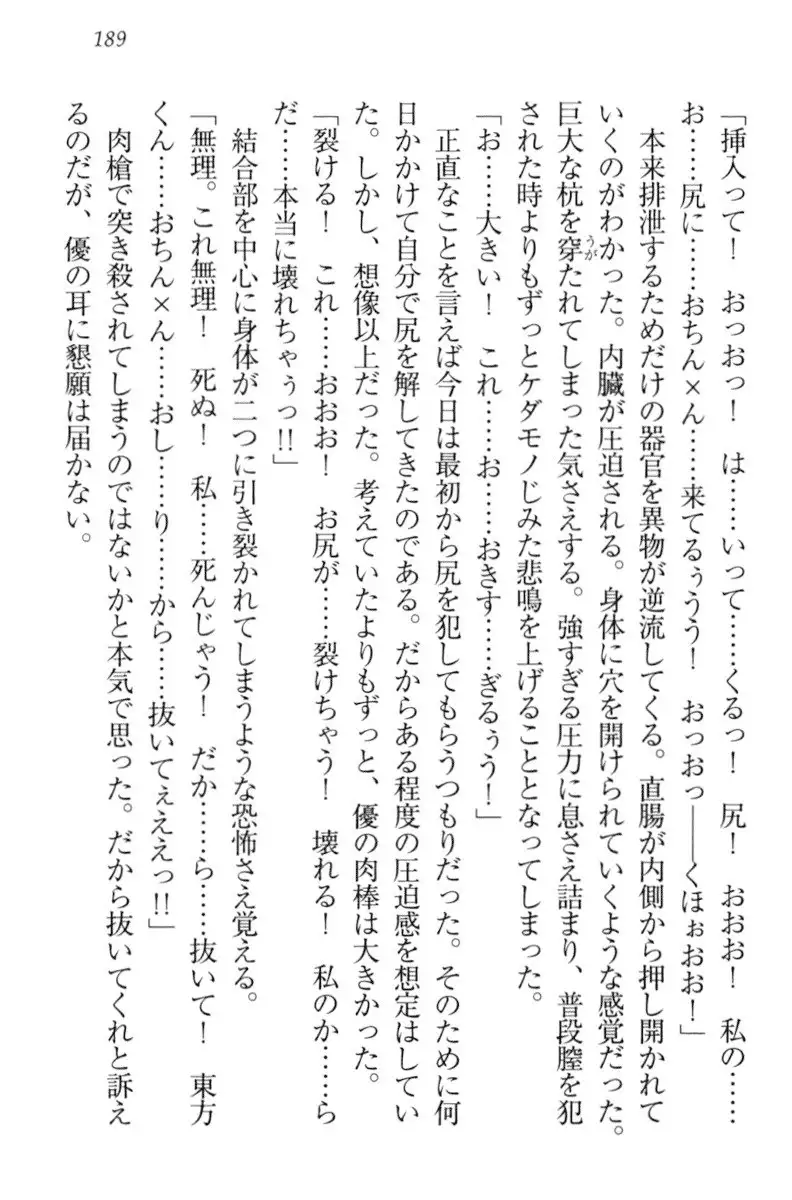 189
「挿入って！　おっおっ！　は……いって……くるっ！　尻！　おおお！　私の……
お……尻に……おちん×ん……来てるぅうう！　おっおっ――くほぉおお！」
　本来排泄するためだけの器官を異物が逆流してくる。直腸が内側から押し開かれて
いくのがわかった。内臓が圧迫される。身体に穴を開けられていくような感覚だった。
巨大な杭を穿たれてしまった気さえする。強すぎる圧力に息さえ詰まり、普段膣を犯
うが
された時よりもずっとケダモノじみた悲鳴を上げることとなってしまった。
「お……大きい！　これ……お……おきす……ぎるぅう！」
　正直なことを言えば今日は最初から尻を犯してもらうつもりだった。そのために何
日かかけて自分で尻を解してきたのである。だからある程度の圧迫感を想定はしてい
た。しかし、想像以上だった。考えていたよりもずっと、優の肉棒は大きかった。
「裂ける！　これ……おおお！　お尻が……裂けちゃう！　壊れる！　私のか……ら
だ……本当に壊れちゃぅっ!!」
　結合部を中心に身体が二つに引き裂かれてしまうような恐怖さえ覚える。
「無理。これ無理！　死ぬ！　私……死んじゃう！　だか……ら……抜いて！　東方
くん……おちん×ん……おし……り……から……抜いてぇええっ!!」
　肉槍で突き殺されてしまうのではないかと本気で思った。だから抜いてくれと訴え
るのだが、優の耳に懇願は届かない。